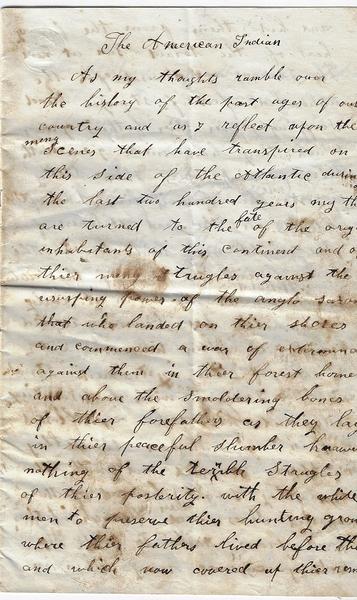 The American Indian
As my thoughts ramble over
the history of the past ages of our
country and as I reflect upon the
many
scenes that have transpired on
this side of the Atlantic during
the last two hundred years my th
are turned to the fate of the orig
inhabitants of this continent and of
thier many strugles against the
usurping power of the anglo saxo
that who landed on thier shores
and commenced a war of extermina
against them in thier forest home
and above the smoldering bones
of thier forefathers as they lay
in thier peaceful slumber knowin
nothing of the terible Strugles
of thier posterity. with the white
men to preserve thier hunting grou
where thier fathers lived before the
and which now covered up thier rem